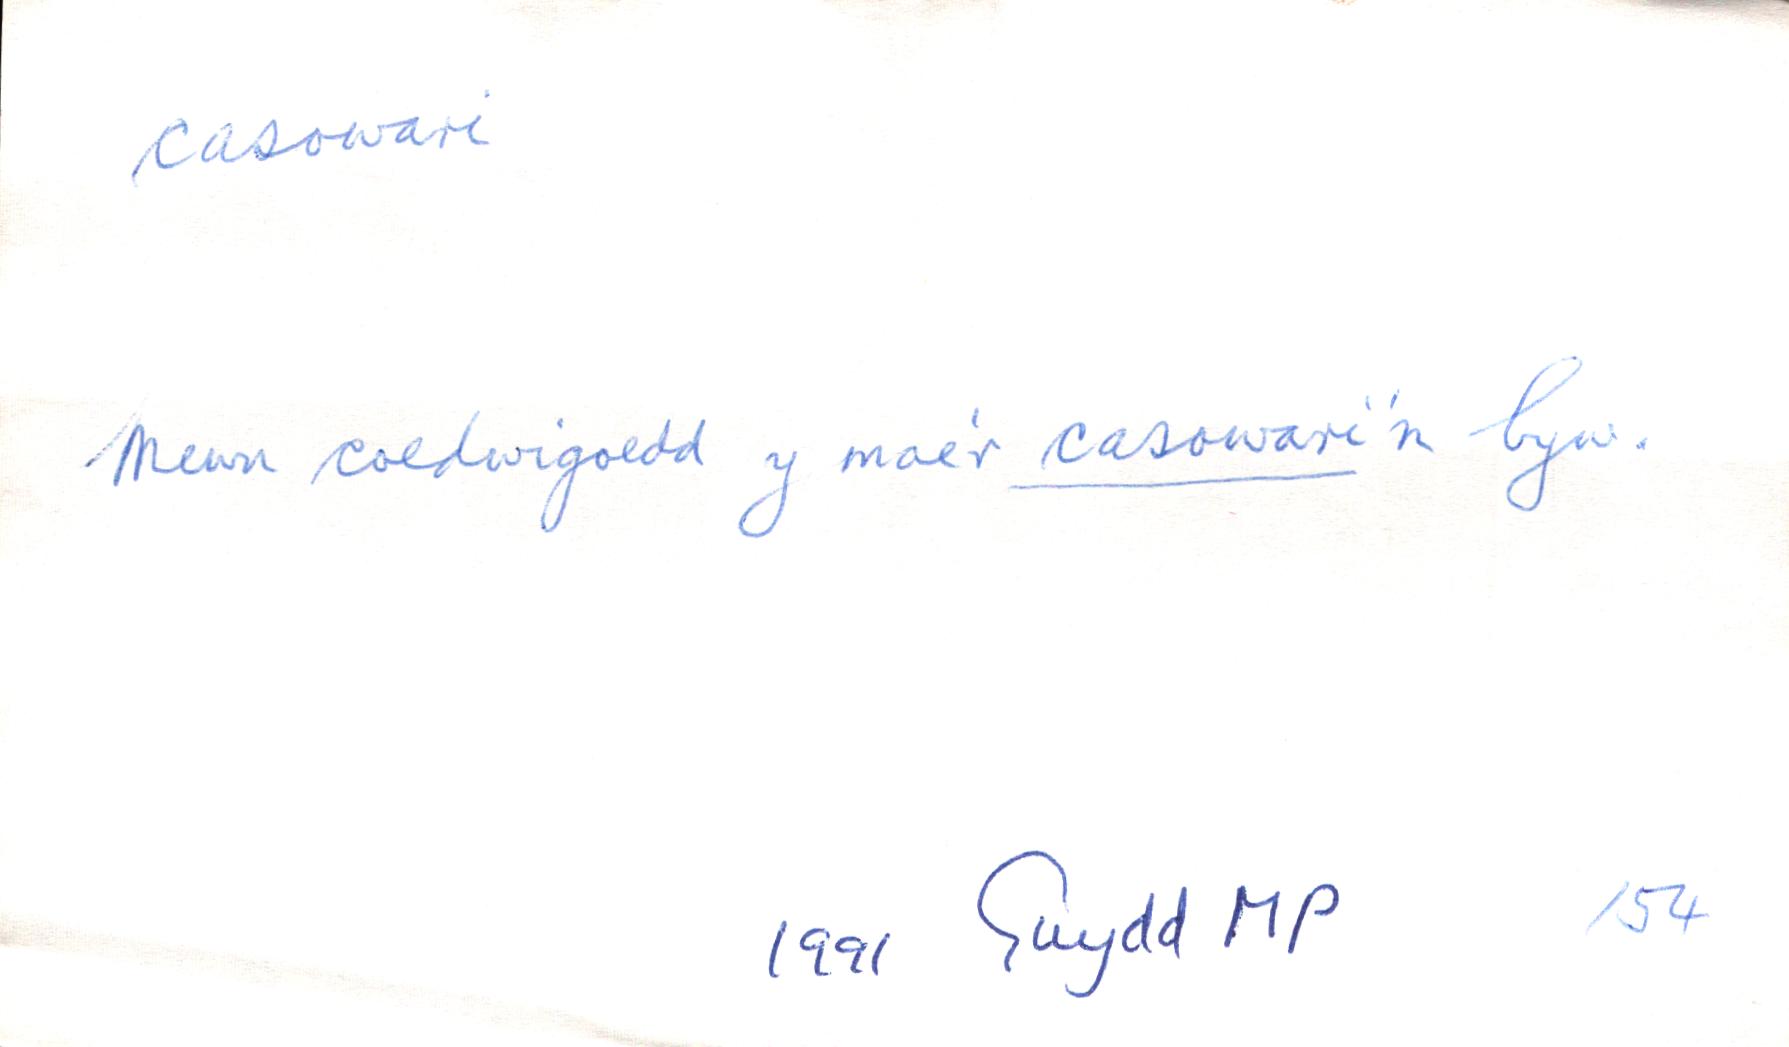 casowari
Mewn coedwigoedd y mae'r casowari'n byw.
1991 Gwydd MP 154